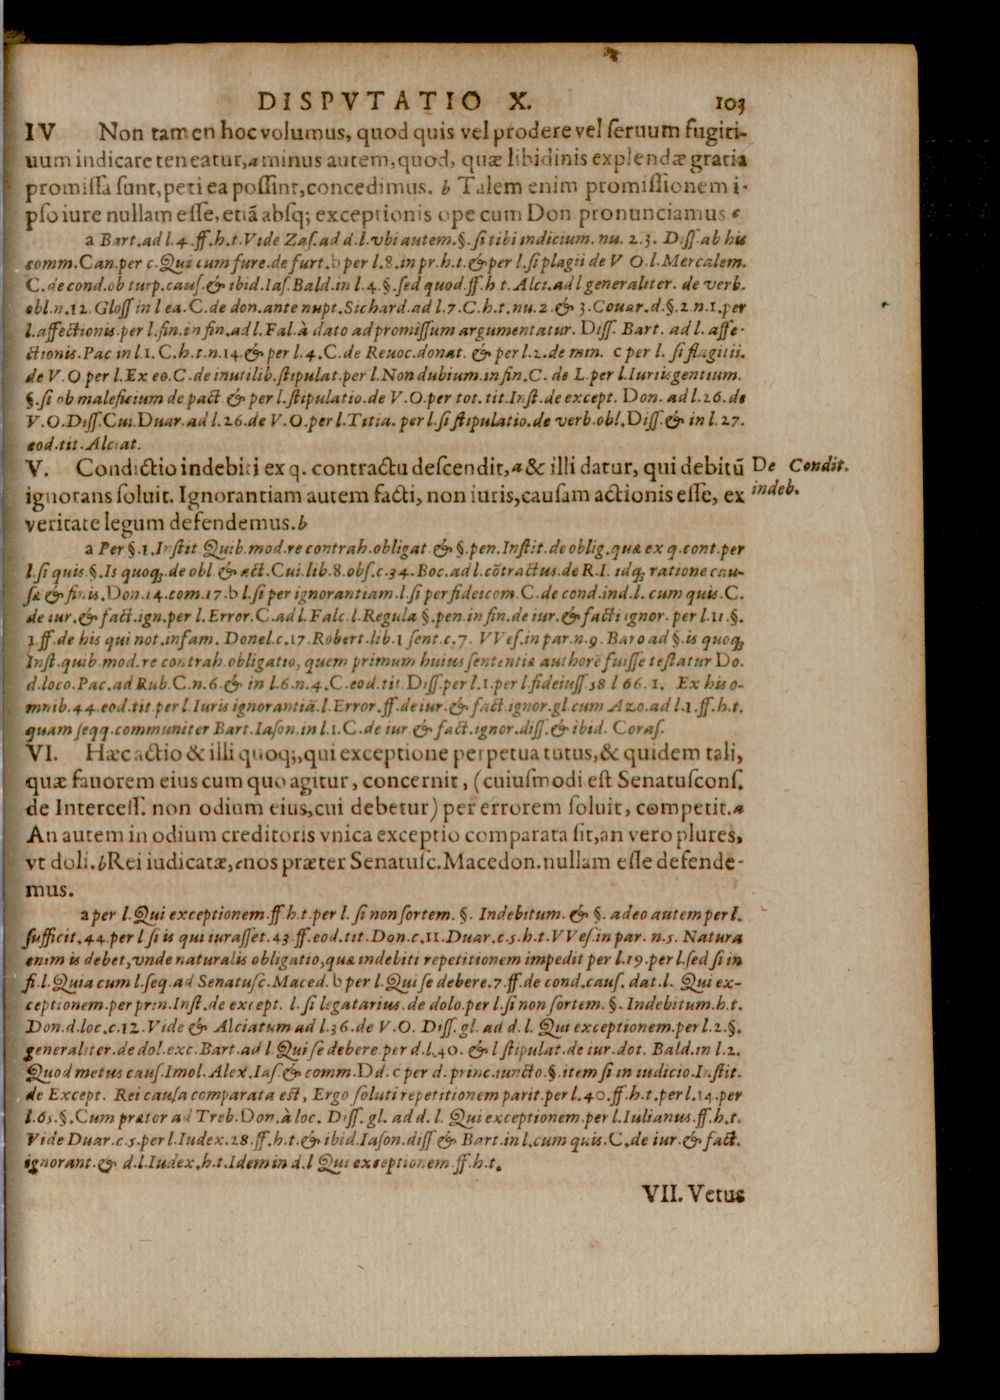 DISPVTATIO X. 103
IV Non tamen hoc volumus, quod quis vel prodere vel seruum fugiti-
uum indicare teneatur, a minus autem, quod, quæ libidinis explendæ gratia
promissa sunt, peti ea possint, concedimus. b Talem enim promissionem i-
pso iure nullam esse, etiã absq; exceptionis ope cum Don pronunciamus c
a Bart. ad l. 4. ff. h. t. Vide Zas. ad d. l. vbi autem. §. si tibi indicium. nu. 2. 3. Diss. ab his
comm. Can. per c. Qui cum fure. de furt. b per l. 8. in pr. h. t. & per l. si plagii de V O. l. Mercalem.
C. de cond. ob turp. caus. & ibid. Ias. Bald. in l. 4. §. sed quod. ff. h t. Alci. ad l generaliter. de verb.
obl. n. 12 Gloss in l ea. C. de don. ante nupt. Sichard. ad l. 7. C. h. t. nu. 2 & 3. Couar. d. §. 2 n. 1. per
l. affectionis. per l. fin. in fin. ad l. Fal. à dato ad promissum argumentatur. Diss. Bart. ad l. affe-
ctionis. Pac in l. 1. C. h. t. n. 14. & per l. 4. C. de Reuoc. donat. & per l. 2. de rein. c per l. si flagitii.
de V. O per l. Ex eo. C. de inutilib. stipulat. per l. Non dubium. in fin. C. de L. per l. Iurisgentium.
§. si ob maleficium de pact & per l. stipulatio. de V. O. per tot. tit. Inst. de except. Don. ad l. 26. de
V. O. Diss. Cui. Duar. ad l. 26. de V. O. per l. Titia. per l. si stipulatio. de verb. obl. Diss. & in l. 27.
eod. tit. Alciat.
V. Condictio indebiti ex q. contractu descendit, a & illi datur, qui debitũ De Condit.
ignorans soluit. Ignorantiam autem facti, non iuris, causam actionis esse, ex indeb.
veritate legum defendemus. b
a Per §. 1. Instit Quib. mod. re contrah. obligat. & §. pen. Instit. de oblig. quæ ex q. cont. per
l. si quis §. Is quoq; de obl & act. Cui. lib. 8. obs. c. 34. Boc. ad l. cõtractus. de R. I. idq; ratione cau-
sæ & finis. Don. 14. com. 17. b l. si per ignorantiam. l. si per fideicom. C. de cond. ind. l. cum quis. C.
de iur. & fact. ign. per l. Error. C. ad l. Falc. l. Regula §. pen. in fin. de iur. & facti ignor. per l. 11. §.
1. ff. de his qui not. infam. Donel. c. 17. Robert. lib. 1 sent. c. 7. VVes. in par. n. 9. Baro ad §. is quoq;
Inst. quib. mod. re contrah. obligatio, quem primum huius sententiæ authorẽ fuisse testatur Do.
d. loco. Pac. ad Rub. C. n. 6. & in l. 6. n. 4. C. eod. tit Diss. per l. 1. per l. fideiuss. 38 l 66. 1. Ex his o-
mnib. 44. eod. tit. per l. Iuris ignorantiã. l. Error. ff. de iur. & fact ignor. gl. cum Azo. ad l. 1. ff. h. t.
quam seqq. communiter Bart. Iason. in l. 1. C. de iur & fact. ignor. diss. & ibid. Coras.
VI. Hæc actio & illi quoq;, qui exceptione perpetua tutus, & quidem tali,
quæ fauorem eius cum quo agitur, concernit, (cuiusmodi est Senatuscons.
de Intercess. non odium eius, cui debetur) per errorem soluit, competit. a
An autem in odium creditoris vnica exceptio comparata sit, an vero plures,
vt doli. b Rei iudicatæ, c nos præter Senatusc. Macedon. nullam esse defende-
mus.
a per l. Qui exceptionem. ff. h. t. per l. si non sortem. §. Indebitum. & §. adeo autem per l.
sufficit. 44. per l si is qui iurasset. 43 ff. eod. tit. Don. c. 11. Duar. c. 5. h. t. VVes. in par. n. 5. Natura
enim is debet, vnde naturalis obligatio, quæ indebiti repetitionem impedit per l. 19. per l. sed si in
fi. l. Quia cum l. seq. ad Senatusc. Maced. b per l. Qui se debere. 7. ff. de cond. caus. dat. l. Qui ex-
ceptionem. per prin. Inst. de except. l. si legatarius. de dolo. per l. si non sortem. §. Indebitum. h. t.
Don. d. loc. c. 12. Vide & Alciatum ad l. 36. de V. O. Diss. gl. ad d. l. Qui exceptionem. per l. 2. §.
generaliter. de dol. exc. Bart. ad l Qui se debere. per d. l. 40. & l stipulat. de iur. dot. Bald. in l. 2.
Quod metus caus. Imol. Alex. Ias. & comm. Dd. c per d. princ. iuncto. §. item si in iudicio. Instit.
de Except. Rei causa comparata est, Ergo soluti repetitionem parit. per l. 40. ff. h. t. per l. 14. per
l. 65. §. Cum prætor ad Treb. Don. à loc. Diss. gl. ad d. l. Qui exceptionem. per l. Iulianus. ff. h. t.
Vide Duar. c. 5. per l. Iudex. 28. ff. h. t. & ibid. Iason. diss & Bart. in l. cum quis. C. de iur. & fact.
ignorant. & d. l. Iudex. h. t. Idem in d. l Qui exceptionem. ff. h. t.
VII. Vetus